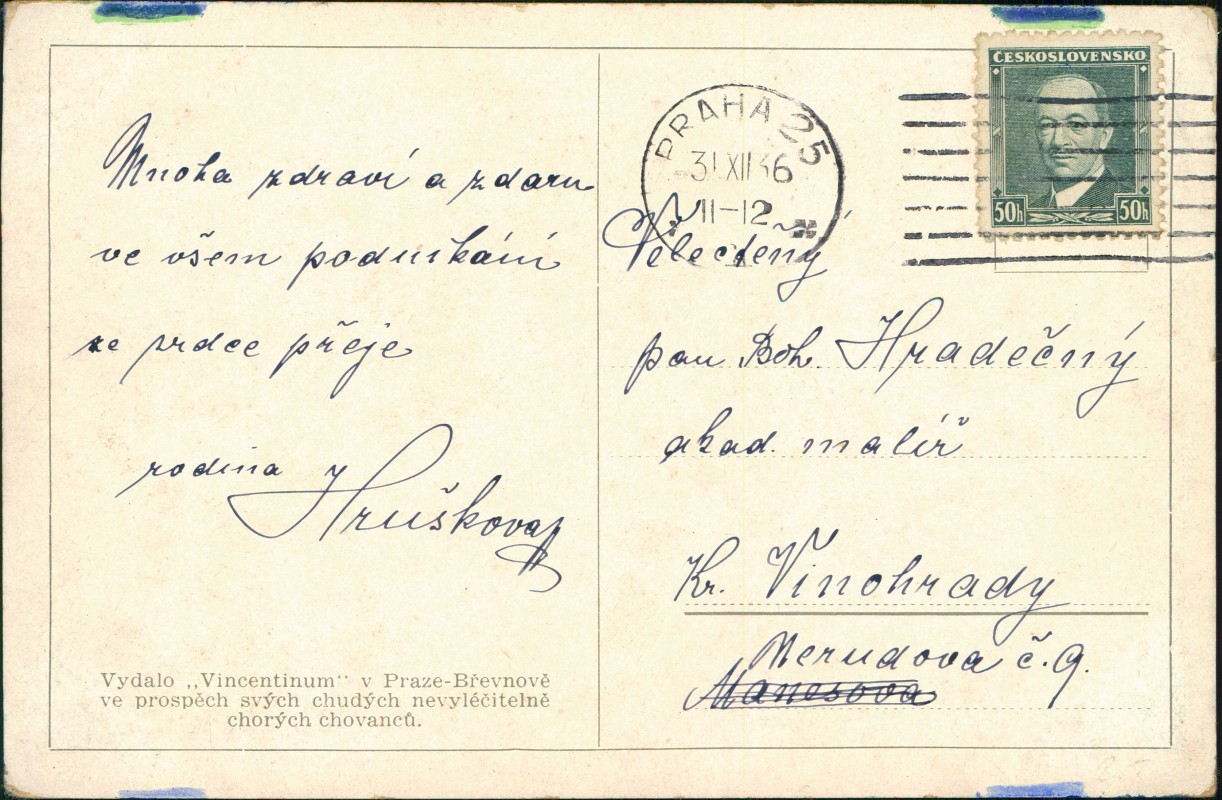 Mnoha zdraví a zdaru
ve všem podnikání
ze srdce přeje
rodina Hruškova
Vydalo „Vincentinum“ v Praze-Břevnově
ve prospěch svých chudých nevyléčitelně
chorých chovanců.
PRAHA 25
31 XII 36
11-12
ČESKOSLOVENSKO
50h 50h
Velectěný
pan Boh. Hradečný
akad. malíř
Kr. Vinohrady
Nerudova č. 9.
Manesova